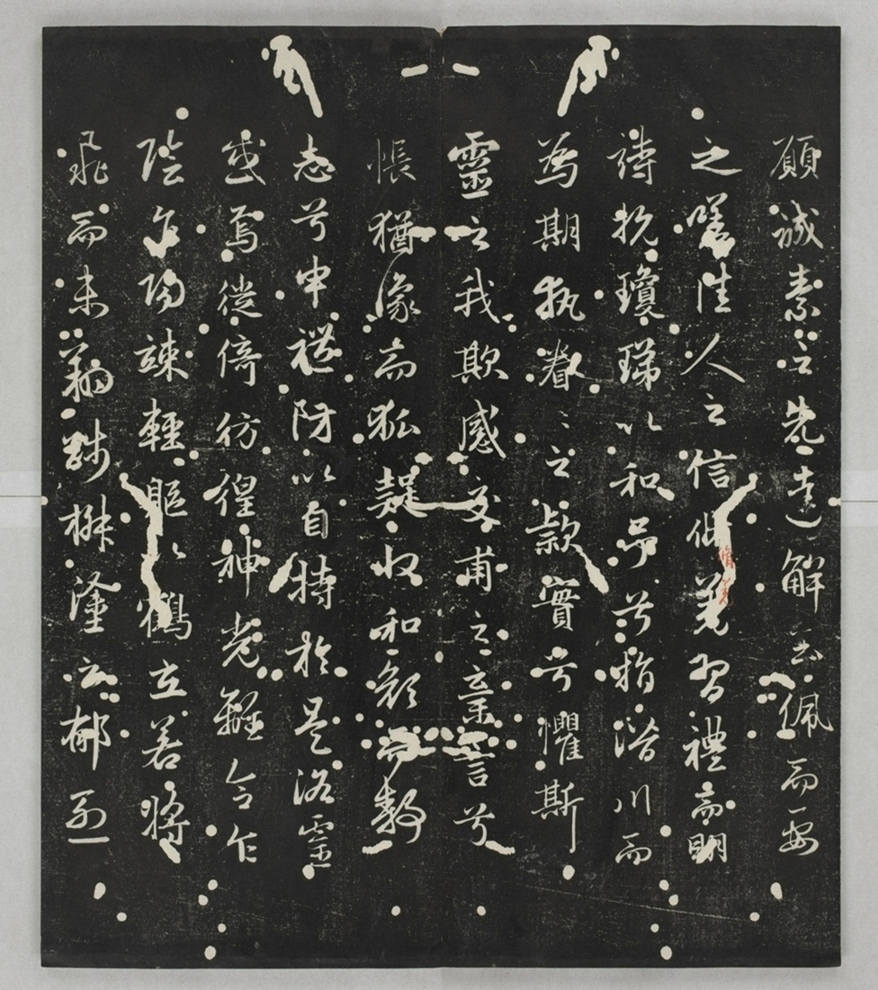 願誠素之先達解玉佩而要
之嗟佳人之信修羌習禮而明
詩抗瓊珶以和予兮指潛川而
為期執眷〻之款實兮懼斯
靈之我欺感交甫之棄言兮
悵猶豫而狐疑收和顏而靜
志兮申禮防以自持於是洛靈
感焉徙倚彷徨神光離合乍
陰乍陽竦輕軀以鶴立若將
飛而未翔踐椒塗之郁烈